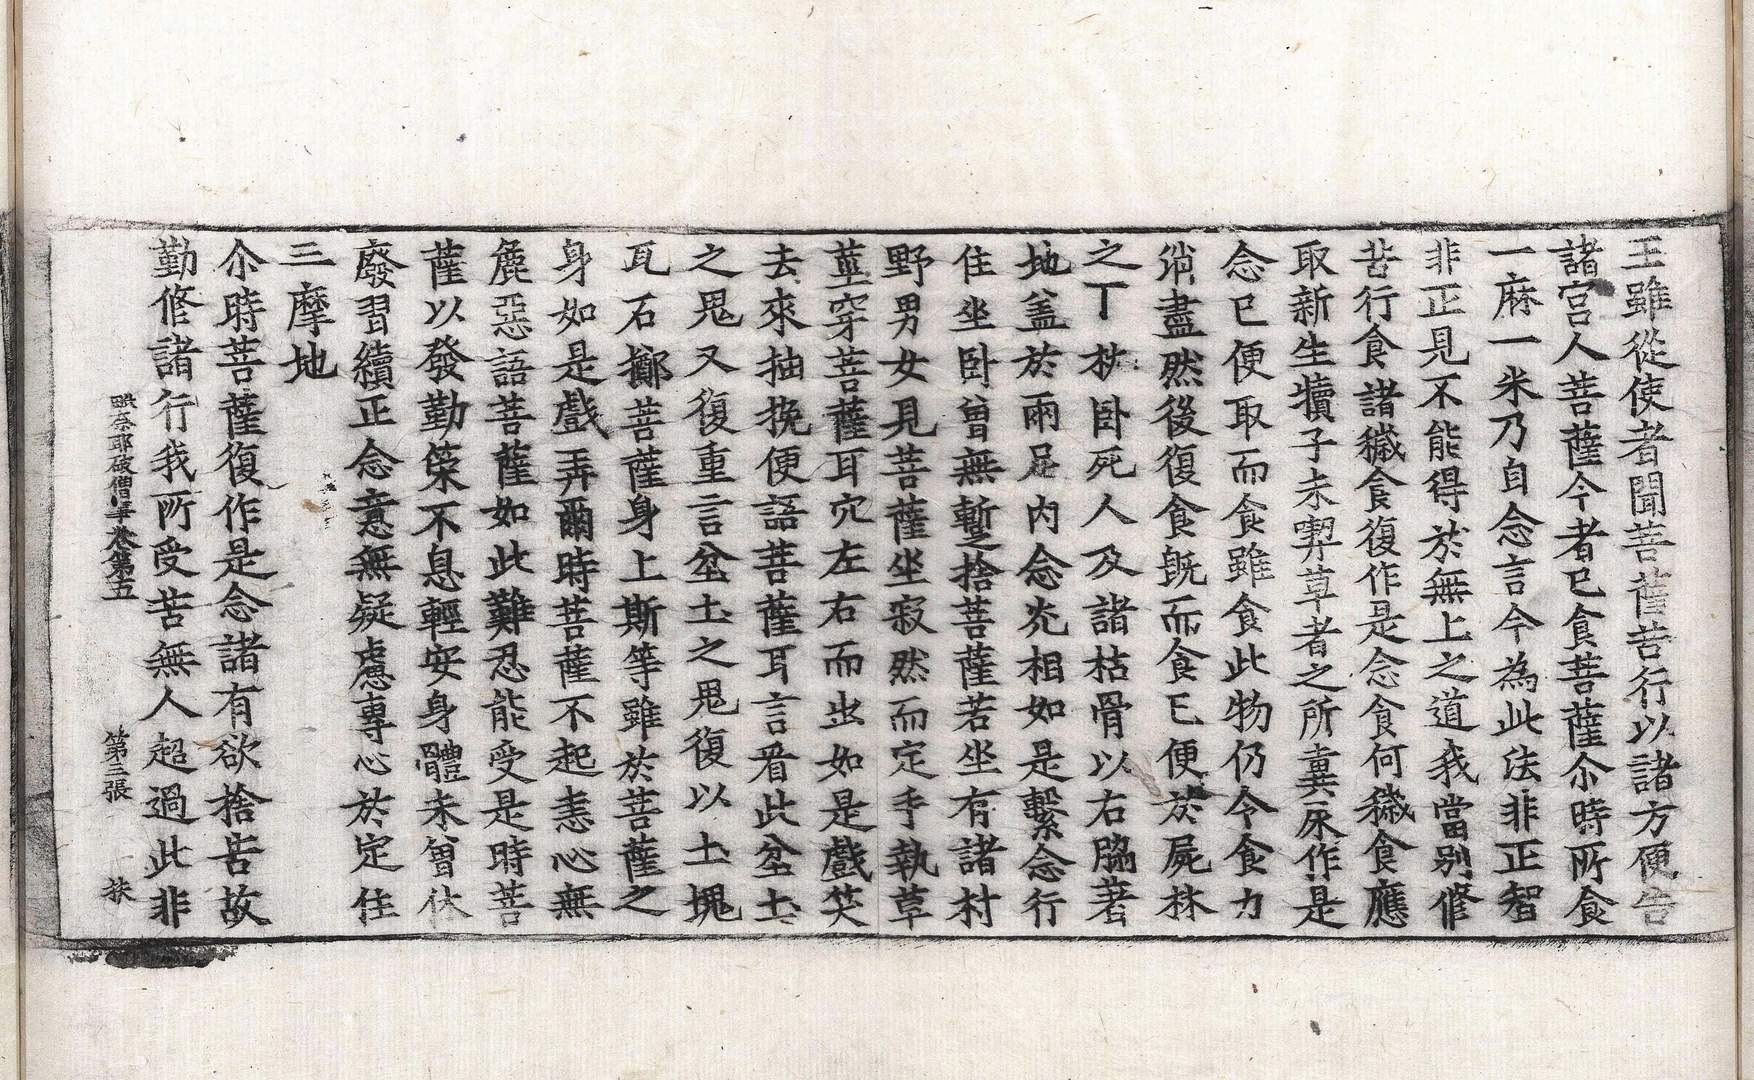 王雖從使者聞菩薩苦行以諸方便告
諸宮人菩薩今者已食菩薩尒時所食
一麻一米乃自念言今為此法非正智
非正見不能得於無上之道我當別修
苦行食諸穢食復作是念食何穢食應
取新生犢子未喫草者之所糞尿作是
念已便取而食雖食此物仍令食力
消盡然後復食旣而食已便於屍林
之下枕卧死人及諸枯骨以右脇著
地盖於兩足內念光相如是繫念行
住坐卧曾無暫捨菩薩若坐有諸村
野男女見菩薩坐寂然而定手執草
莖穿菩薩耳穴左右而出如是戲笑
去來抽挽便語菩薩耳言看此坌土
之鬼又復重言坌土之鬼復以土塊
瓦石擲菩薩身上斯等雖於菩薩之
身如是戲弄爾時菩薩不起恚心無
麁惡語菩薩如此難忍能受是時菩
薩以發勤策不息輕安身體未曾休
廢習續正念意無疑慮專心於定住
三摩地
尒時菩薩復作是念諸有欲捨苦故
勤修諸行我所受苦無人超過此非
毗奈耶破僧事卷第五 第三張 扶